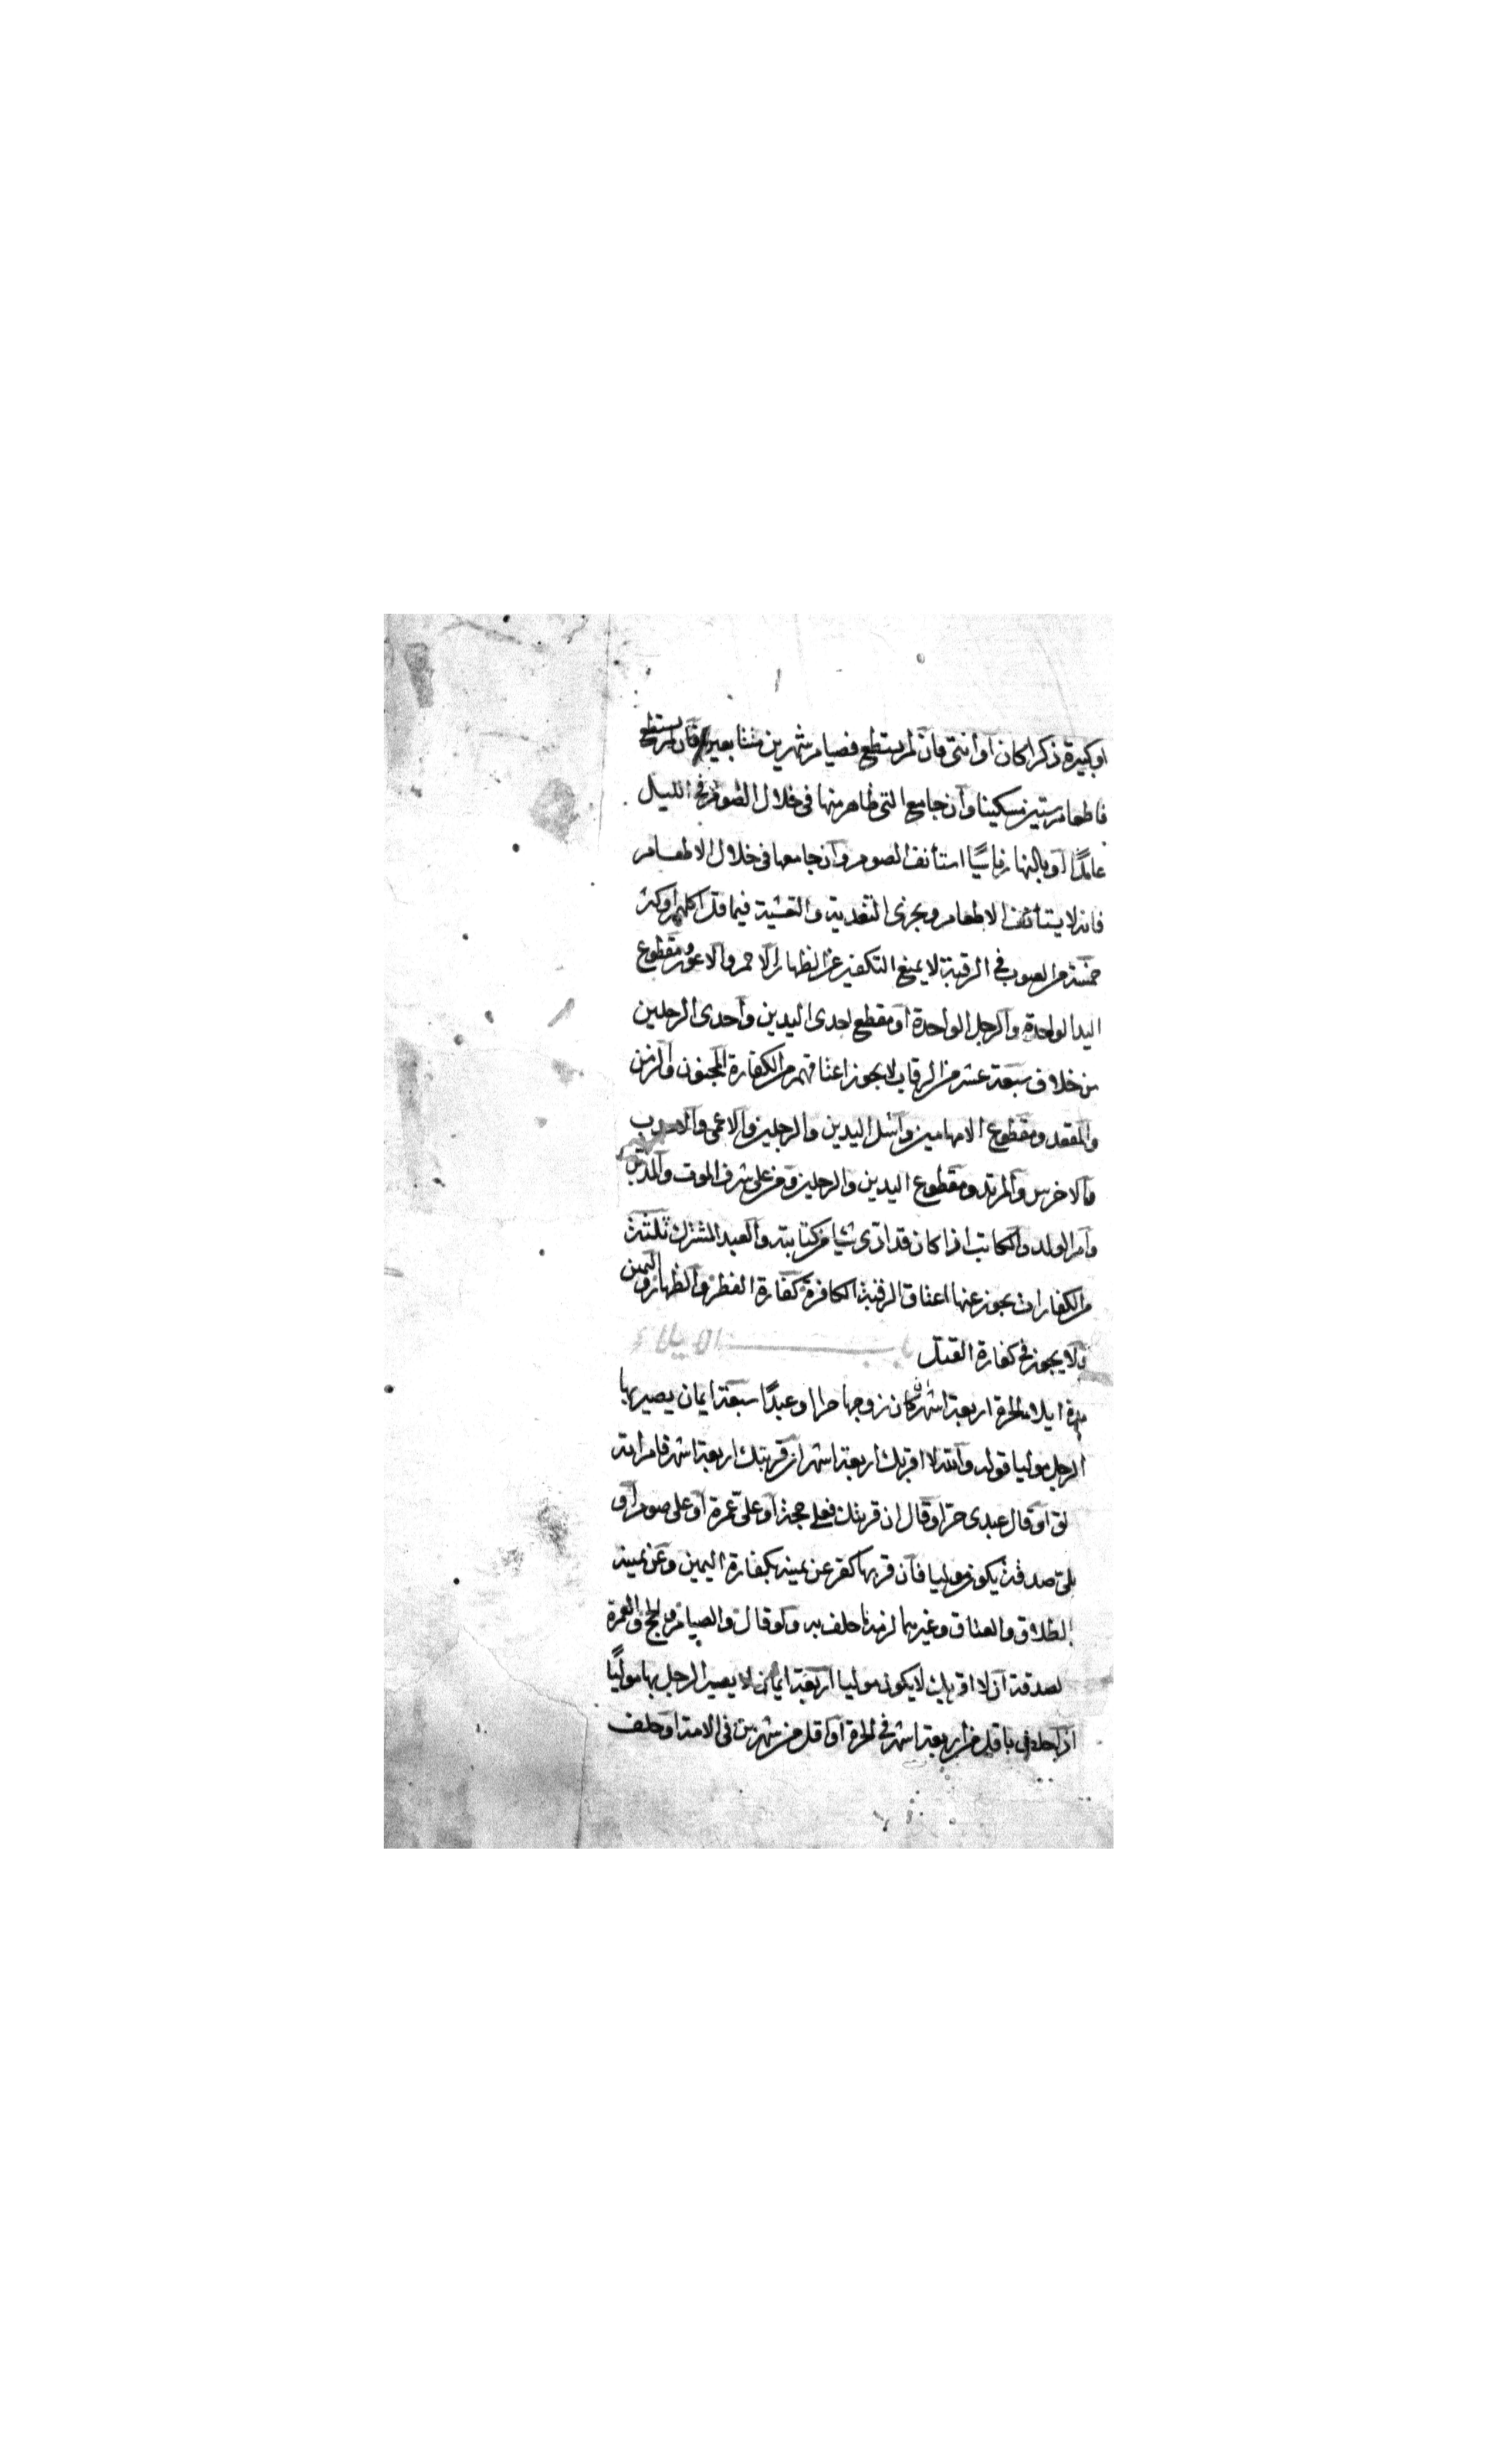 او كبيرة ذكرا كان او انثى فان لم يستطع فصيام شهرين متتابعين فان لم يستطع
فاطعام ستين مسكينا وان جامع التى ظاهر منها فى خلال الصوم فى الليل
عامدًا او بالنهار ناسيًا استأنف الصوم وان جامعها فى خلال الاطعام
فانه لا يستأنف الاطعام ويجزى التغدية والتعشية فيما قل اكلهم او كثر
خمسة من العيوب فى الرقبة لا يمنع التكفير عن الظهار الاصم والاعور ومقطوع
اليد الواحدة والرجل الواحدة او مقطع احدى اليدين واحدى الرجلين
من خلاف سبعة عشر من الرقاب لا يجوز اعتاقهم من الكفارة المجنون والزمن
والمقعد ومقطوع الابهامين واشل اليدين والرجلين والاعمى
والاخرس والمرتد ومقطوع اليدين والرجلين ومن على شرف الموت والمدبر
وام الولد والمكاتب اذا كان قد ادى شيا من كتابته والعبد المشترك ثلثة
من الكفارات يجوز عنها اعتاق الرقبة الكافرة كفارة الفطر والظهار واليمين
ولا يجوز فى كفارة القتل باب الايلاء
مدة ايلاء الحرة اربعة اشهر كان زوجها حرا او عبدًا سبعة ايمان يصير بها
الرجل موليا قوله والله لا اقربك اربعة اشهر ان قربتك اربعة اشهر فامراته
لق او قال عبدى حر او قال ان قربتك فعلى حجة او على عمرة او على صوم او
على صدقة يكون موليا فان قربها كفر عن يمينه بكفارة اليمين وعن يمينه
بالطلاق والعتاق وغيرهما لزمه ما حلف به ولو قال والصيام والحج والعمرة
لصدقة ان لا اقربك لا يكون موليا اربعة ايمان لا يصير الرجل بها موليًا
اذا حلف باقل من اربعة اشهر فى الحرة او اقل من شهرين فى الامة او حلف